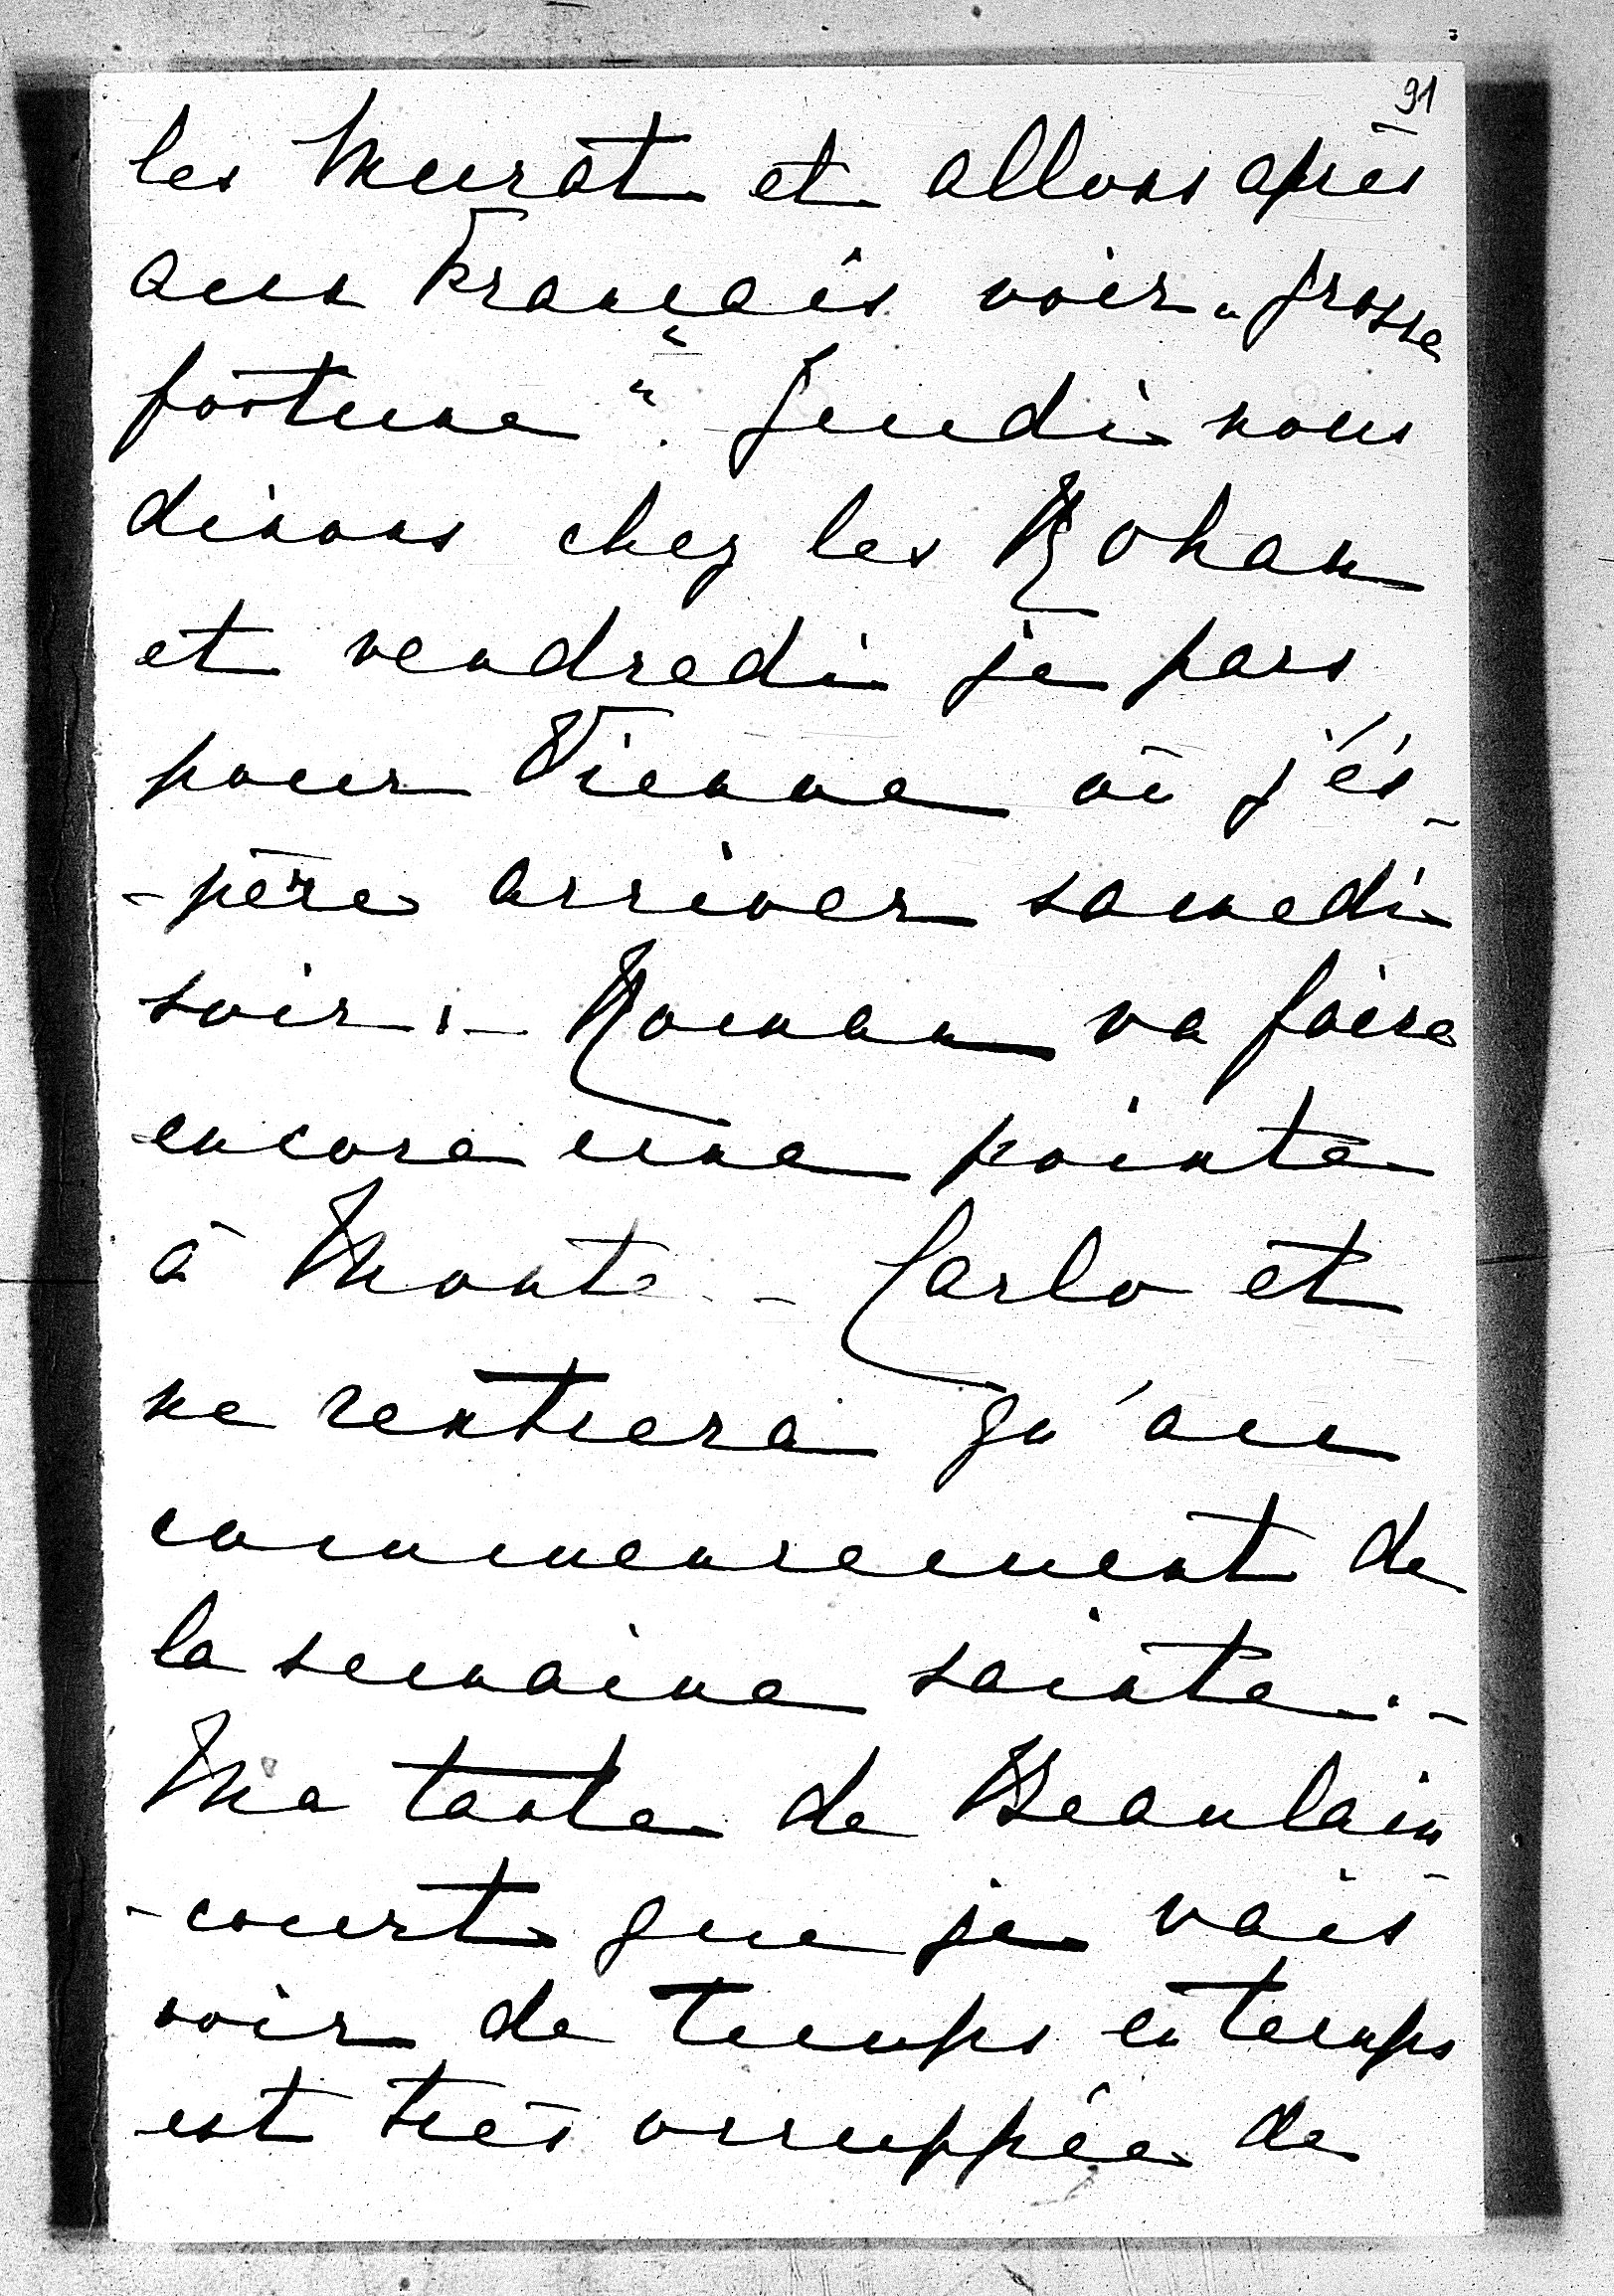 91
les Murat et allons après
aux Français voir „grosse
fortune“. Jeudi nous
dinons chez les Rohan
et vendredi je pars
pour Vienne où j'és-
-père arriver samedi
soir. – Roman va faire
encore une pointe
à Monte-Carlo et
ne rentrera qu'au
commencement de
la semaine sainte. –
Ma tante de Beaulain-
-court que je vais
voir de temps en temps
est très occuppée de